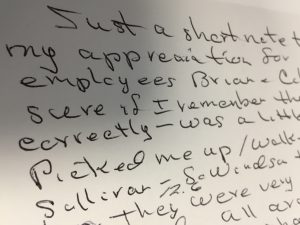 Just a short note t
my appreciation for
employees Brian &
sure if I remember the
correctly - was a little
Picked me up / walk
Sullivan - S. Windsor
they were very
all are